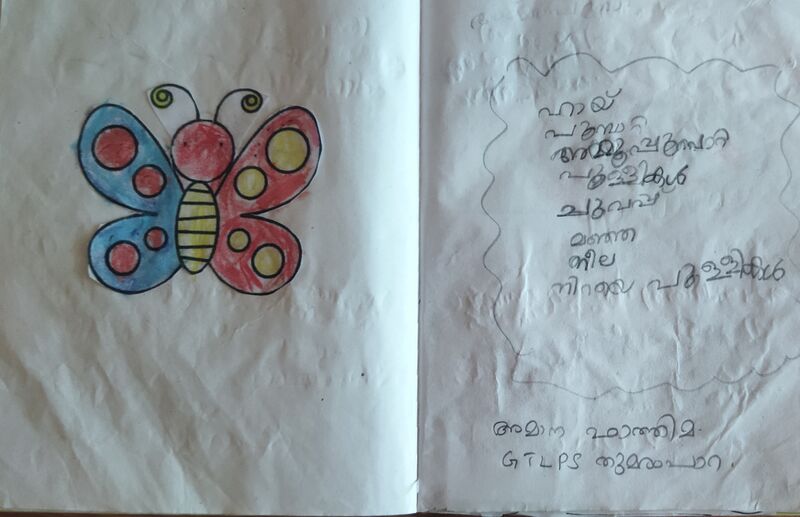 ഹായ്
പൂമ്പാറ്റ
അമ്മുപൂമ്പാറ്റ
പുള്ളികൾ
ചുവപ്പ്
മഞ്ഞ
നീല
നിറയെ പുള്ളികൾ
അമാന ഫാത്തിമ.
GTLPS തുമരംപാറ.